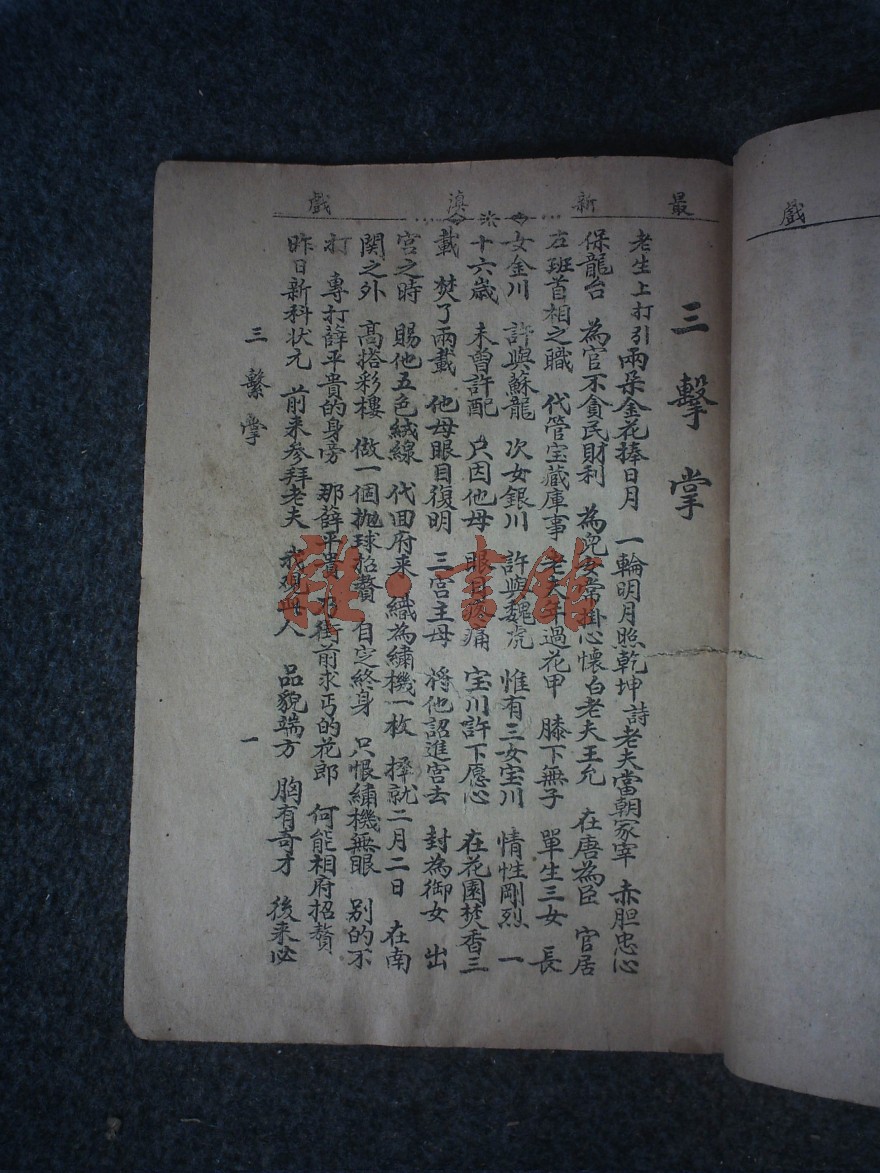 最新滇戲
三擊掌
老生上打引兩朵金花捧日月 一輪明月照乾坤詩老夫當朝冢宰 赤胆忠心
保龍台 為官不貪民財利 為兒女常掛心懷白老夫王允 在唐為臣 官居
左班首相之職 代管宝藏庫事 老夫年過花甲 膝下無子 單生三女 長
女金川 許與蘇龍 次女銀川 許與魏虎 惟有三女宝川 情性剛烈 一
十六歲 未曾許配 只因他母 眼目疼痛 宝川許下愿心 在花園焚香三
載 焚了兩載 他母眼目復明 三宮主母 將他詔進宮去 封為御女 出
宮之時 賜他五色絨線 代回府来 織為繡機一枚 擇就二月二日 在南
関之外 高搭彩樓 做一個抛球招贅 自定終身 只恨繡機無眼 別的不
打 專打薛平貴的身旁 那薛平貴 乃街前求丐的花郎 何能相府招贅
昨日新科状元 前来参拜老夫 我观此人 品貌端方 胸有奇才 後来必
三繫掌
一
戲
雜·書館